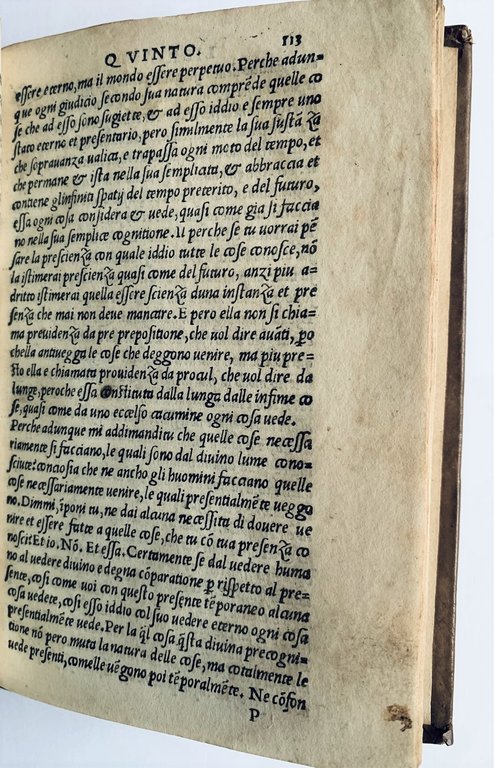 QVINTO. 113
eſſere eterno, ma il mondo eſſere perpetuo. Perche adun=
que ogni giudicio ſecondo ſua natura comprẽde quelle co
ſe che ad eſſo ſono ſugiette, & ad eſſo iddio e ſempre uno
ſtato eterno et preſentario, pero ſimilmente la ſua ſuſtã za
che ſoprauanza ualica, e trapaſſa ogni moto del tempo, et
che permane & iſta nella ſua ſemplicita, & abbraccia et
contiene glinfiniti ſpatij del tempo preterito, e del futuro,
eſſa ogni coſa conſidera & uede, quaſi come gia ſi faccia
no nella ſua ſemplice cognitione. Il perche ſe tu uorrai pẽ
ſare la preſcienza con quale iddio tutte le coſe conoſce, nõ
la iſtimerai preſcienza quaſi come del futuro, anzi piu a=
dritto iſtimerai quella eſſere ſcienza duna inſtanza et pre
ſenza che mai non deue mancare. E pero ella non ſi chia=
ma preuidenza da pre prepoſitione, che uol dire auãti, ꝑo
chella antuegga le coſe che deggono uenire, ma piu pre=
ſto ella e chiamata prouidenza da procul, che uol dire da
lunge, peroche eſſa conſtituta dalla lunga dalle infime co
ſe, quaſi come da uno eccelſo cacumine ogni coſa uede.
Perche adunque mi addimanditu che quelle coſe neceſſa
riamente ſi facciano, le quali ſono dal diuino lume cono=
ſciute: concioſia che ne ancho gli huomini facciano quelle
coſe neceſſariamente uenire, le quali preſentialmẽte ueggo
no. Dimmi, iponi tu, ne dai alcuna neceſſita di douere ue
nire et eſſere fatte a quelle coſe, che tu cõ tua preſenza co
noſci? Et io. Nõ. Et eſſa. Certamente ſe dal uedere huma
no al uedere diuino e degna cõparatione ꝑ riſpetto al pre=
ſente, coſi come uoi con queſto preſente tẽporaneo alcuna
coſa uedete, coſi eſſo iddio col ſuo uedere eterno ogni coſa
preſentialmẽte uede. Per la q̃l coſa q̃ſta diuina precogni=
tione nõ pero muta la natura delle coſe, ma cotalmente le
uede preſenti, comelle uẽgono poi tẽporalmẽte. Ne cõfon
P